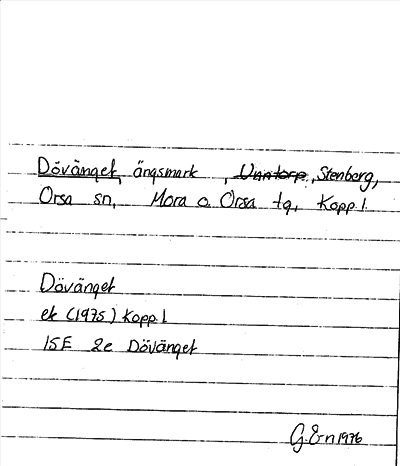 Dövänget, ängsmark, Unntorp, Stenberg,
Orsa sn, Mora o. Orsa tg, Kopp.l.
Dövänget
ek (1975) Kopp.l
15E 2e Dövänget
G.E-n 1976